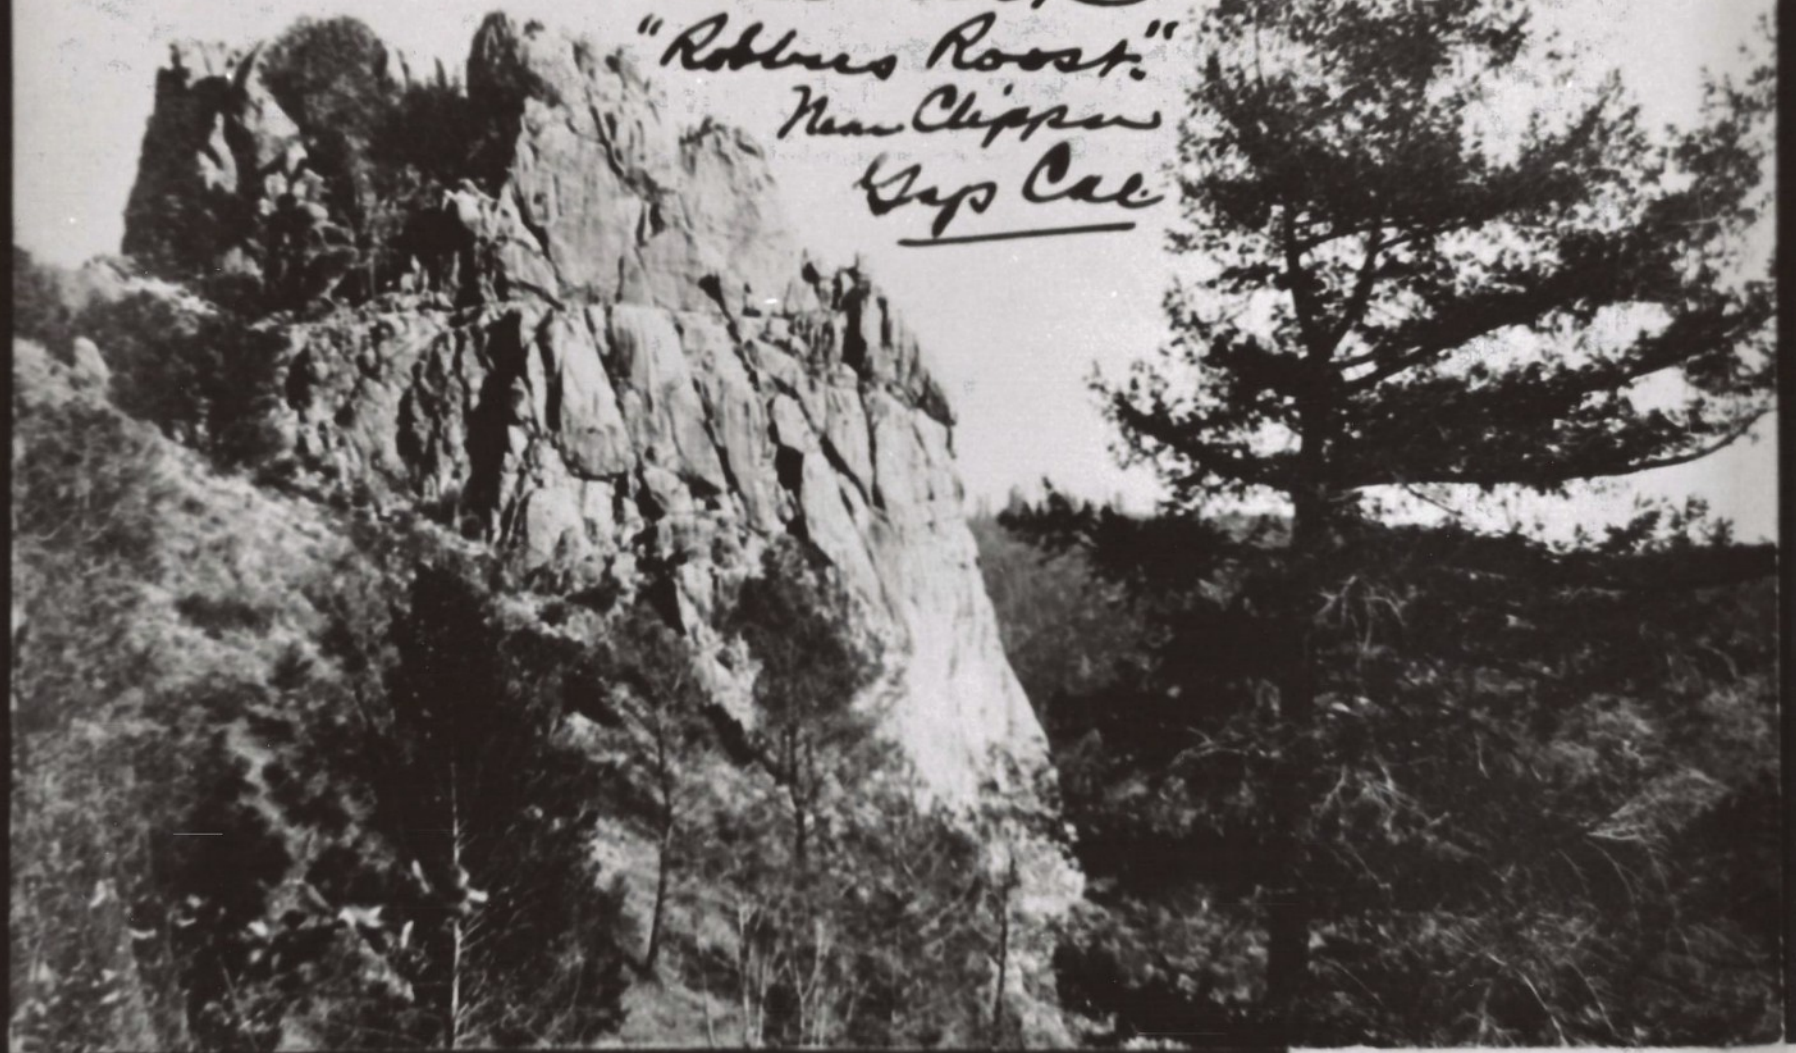 "Robbers Roost."
Near Clipper
Gap Cal